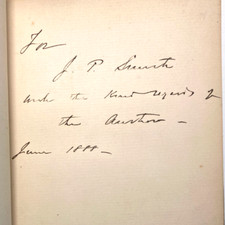 For
J. P. Smith
with the kind regards of
the Author —
June 1888 —